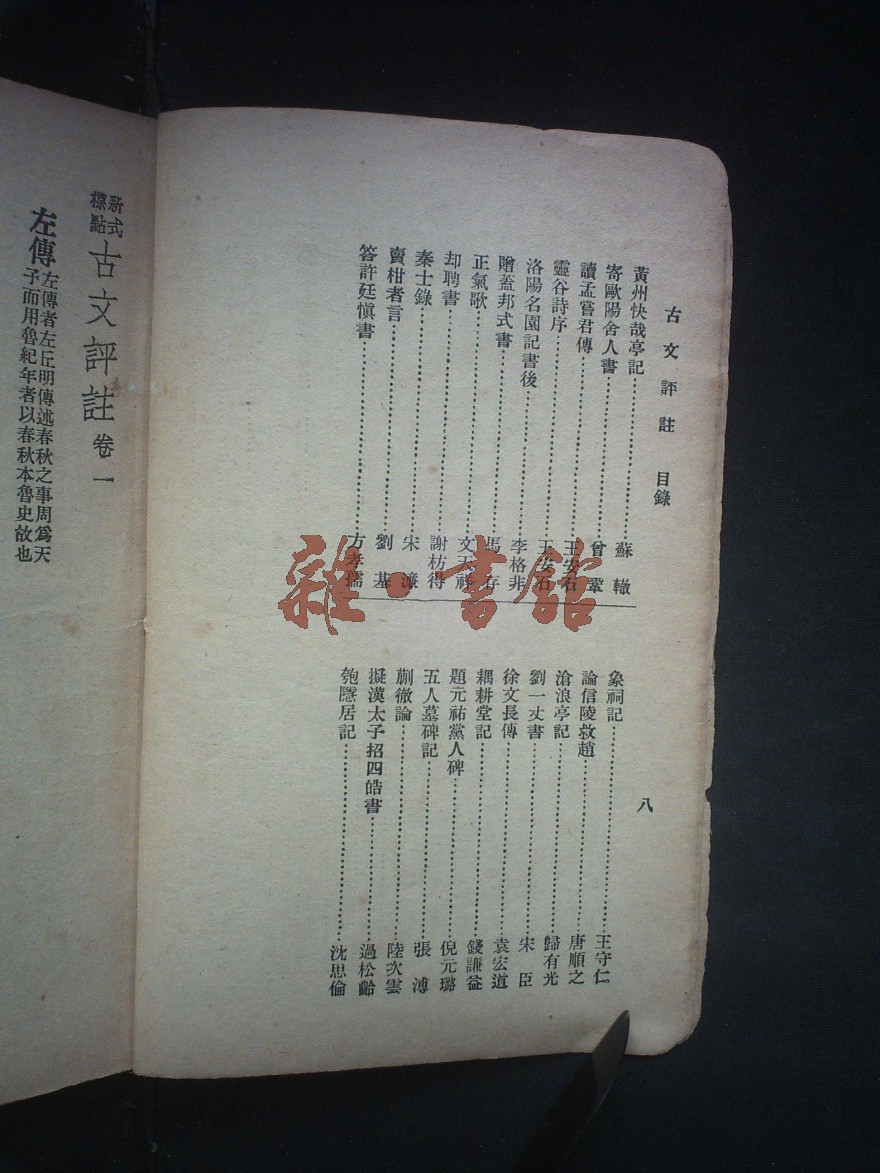 古文評註 目錄
黃州快哉亭記 蘇轍
寄歐陽舍人書 曾鞏
讀孟嘗君傳 王安石
靈谷詩序 王安石
洛陽名園記書後 李格非
贈蓋邦式書 馬存
正氣歌 文天祥
却聘書 謝枋得
秦士錄 宋濂
賣柑者言 劉基
答許廷愼書 方孝孺
八
象祠記 王守仁
論信陵救趙 唐順之
滄浪亭記 歸有光
劉一丈書 宋臣
徐文長傳 袁宏道
耦耕堂記 錢謙益
題元祐黨人碑 倪元璐
五人墓碑記 張溥
蒯徹論 陸次雲
擬漢太子招四皓書 過松齡
匏隱居記 沈思倫
新式標點 古文評註 卷一
左傳 左傳者左丘明傳述春秋之事周爲天
子而用魯紀年者以春秋本魯史故也
雜·書館